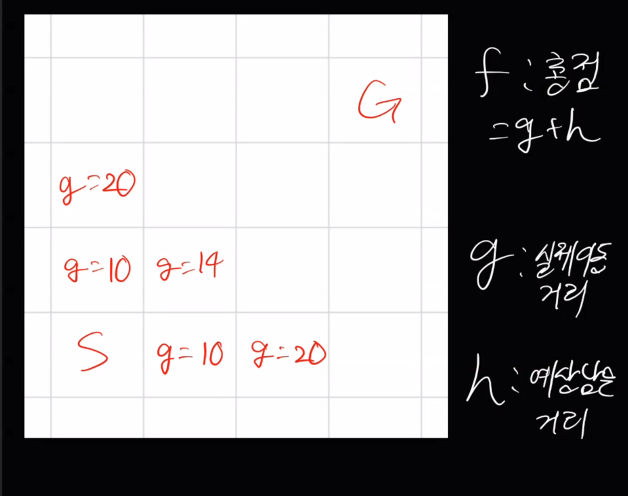 G
g=20
g=10 g=14
S g=10 g=20
f: 총점
=g+h
g: 실제이동
거리
h: 예상남은
거리